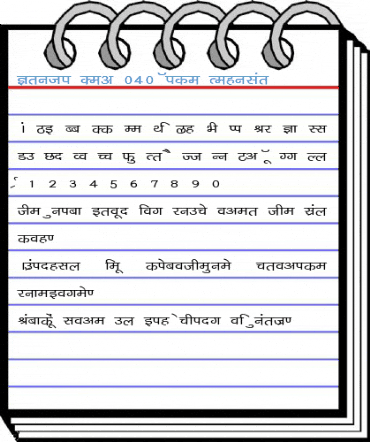 ज्ञतनजप क्मअ 040ॅपकम त्महनसंत
ां ठइ ब्ब क्क म्म थ्र्ि ळह भ्ी प्प श्रर ज्ञा स्स
डउ छद व्व च्च फु त्त ै ज्ज न्न टअ ॅू ग्ग ल्ल
्र्र 1 2 3 4 5 6 7 8 9 0
जीम ुनपबा इतवूद विग रनउचे वअमत जीम संल
कवहण
थ्ंिउपदहसल म्ूि कपेबवजीमुनमे चतवअपकम
रनामइवगमेण
श्रंबाकूें सवअम उल इपह ेचीपदग वि ुनंतज्रण